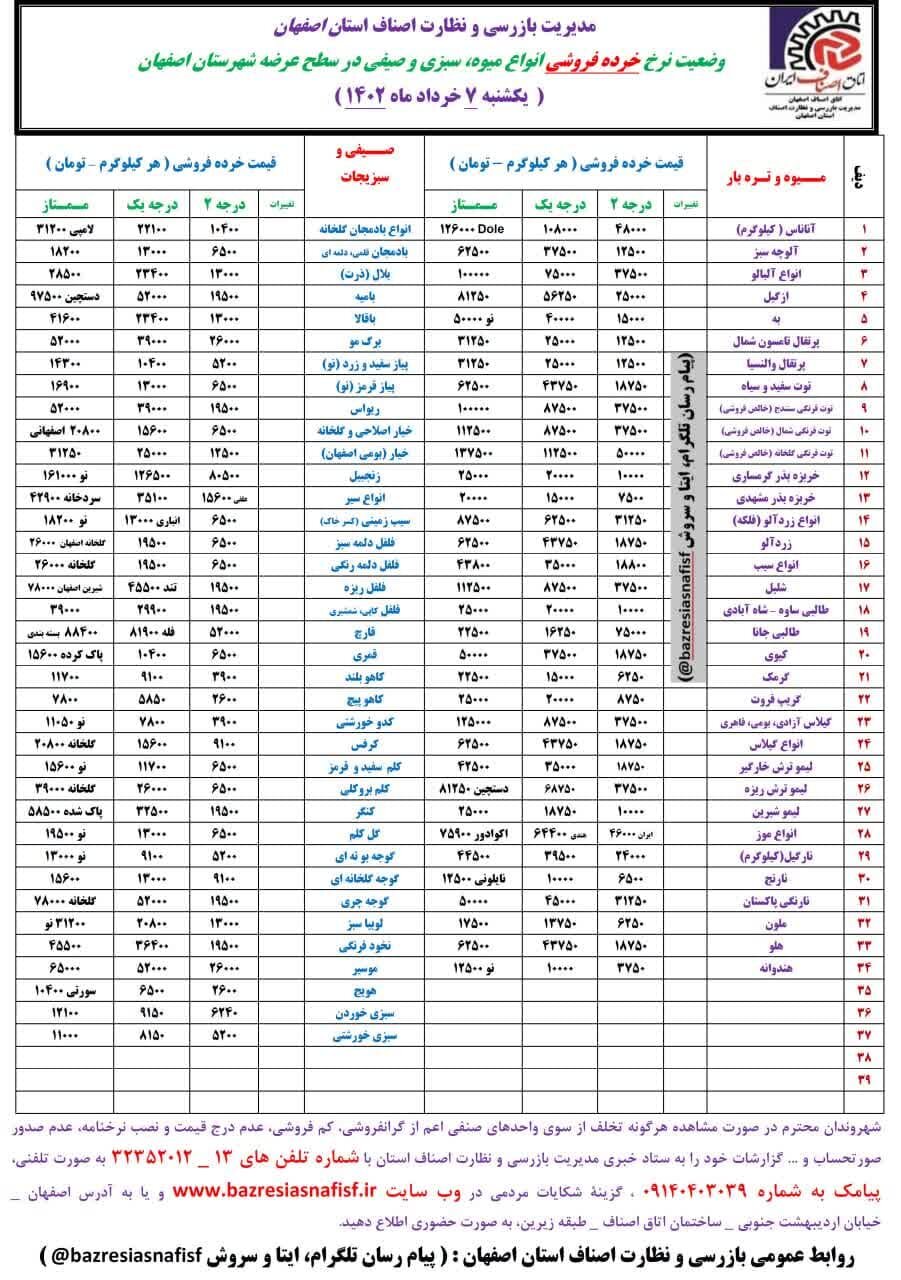 مدیریت بازرسی و نظارت اصناف استان اصفهان
وضعیت نرخ خرده فروشی انواع میوه، سبزی و صیفی در سطح عرضه شهرستان اصفهان
( یکشنبه ۷ خرداد ماه ۱۴۰۲ )
اتاق اصناف ایران
اتاق اصناف اصفهان
مدیریت بازرسی و نظارت اصناف
استان اصفهان
دیف میـوه و تـره بار قیمت خرده فروشی ( هر کیلوگرم – تومان ) صـیفی و سبزیجات قیمت خرده فروشی ( هر کیلوگرم – تومان )
تغییرات درجه ۲ درجه یک مـمـتاز تغییرات درجه ۲ درجه یک مـمـتاز
۱ آناناس ( کیلوگرم) ۴۸۰۰۰ ۱۰۸۰۰۰ Dole ۱۲۶۰۰۰ انواع بادمجان گلخانه ۱۰۴۰۰ ۲۲۱۰۰ لامپی ۳۱۲۰۰
۲ آلوچه سبز ۱۲۵۰۰ ۳۷۵۰۰ ۶۲۵۰۰ بادمجان قلمی، دلمه ای ۶۵۰۰ ۱۳۰۰۰ ۱۸۲۰۰
۳ انواع آلبالو ۳۷۵۰۰ ۷۵۰۰۰ ۱۰۰۰۰۰ بلال (ذرت) ۱۳۰۰۰ ۲۳۴۰۰ ۲۸۵۰۰
۴ ازگیل ۲۵۰۰۰ ۵۶۲۵۰ ۸۱۲۵۰ بامیه ۱۹۵۰۰ ۵۲۰۰۰ دستچین ۹۷۵۰۰
۵ به ۱۵۰۰۰ ۴۰۰۰۰ نو ۵۰۰۰۰ باقالا ۱۳۰۰۰ ۲۳۴۰۰ ۴۱۶۰۰
۶ پرتقال تامسون شمال ۱۲۵۰۰ ۲۵۰۰۰ ۳۱۲۵۰ برگ مو ۲۶۰۰۰ ۳۹۰۰۰ ۵۲۰۰۰
۷ پرتقال والنسیا ۱۲۵۰۰ ۲۵۰۰۰ ۳۱۲۵۰ پیاز سفید و زرد (نو) ۵۲۰۰ ۱۰۴۰۰ ۱۴۳۰۰
۸ توت سفید و سیاه ۱۸۷۵۰ ۴۳۷۵۰ ۶۲۵۰۰ پیاز قرمز (نو) ۶۵۰۰ ۱۳۰۰۰ ۱۶۹۰۰
۹ توت فرنگی سنندج (خالص فروشی) ۳۷۵۰۰ ۸۷۵۰۰ ۱۰۰۰۰۰ ریواس ۱۹۵۰۰ ۳۹۰۰۰ ۵۲۰۰۰
۱۰ توت فرنگی شمال (خالص فروشی) ۳۷۵۰۰ ۸۷۵۰۰ ۱۱۲۵۰۰ خیار اصلاحی و گلخانه ۶۵۰۰ ۱۵۶۰۰ ۲۰۸۰۰ اصفهانی
۱۱ توت فرنگی گلخانه (خالص فروشی) ۵۰۰۰۰ ۱۱۲۵۰۰ ۱۳۷۵۰۰ خیار (بومی اصفهان) ۱۲۵۰۰ ۲۵۰۰۰ ۳۱۲۵۰
۱۲ خربزه بذر گرمساری ۱۰۰۰۰ ۲۰۰۰۰ ۲۵۰۰۰ زنجبیل ۸۰۵۰۰ ۱۲۶۵۰۰ نو ۱۶۱۰۰۰
۱۳ خربزه بذر مشهدی ۷۵۰۰ ۱۵۰۰۰ ۲۰۰۰۰ انواع سیر ۱۵۶۰۰ ۳۵۱۰۰ سردخانه ۴۲۹۰۰
۱۴ انواع زردآلو (فلکه) ۳۱۲۵۰ ۶۲۵۰۰ ۸۷۵۰۰ سیب زمینی (کسر خاک) ۶۵۰۰ انباری ۱۳۰۰۰ نو ۱۸۲۰۰
۱۵ زردآلو ۱۸۷۵۰ ۴۳۷۵۰ ۶۲۵۰۰ فلفل دلمه سبز ۶۵۰۰ ۱۹۵۰۰ گلخانه اصفهان ۲۶۰۰۰
۱۶ انواع سیب ۱۸۸۰۰ ۳۵۰۰۰ ۴۳۸۰۰ فلفل دلمه رنگی ۶۵۰۰ ۱۹۵۰۰ گلخانه ۲۶۰۰۰
۱۷ شلیل ۳۷۵۰۰ ۸۷۵۰۰ ۱۱۲۵۰۰ فلفل ریزه ۱۹۵۰۰ تند ۴۵۵۰۰ شیرین اصفهان ۷۸۰۰۰
۱۸ طالبی ساوه – شاه آبادی ۱۰۰۰۰ ۲۰۰۰۰ ۲۵۰۰۰ فلفل کاپی، شمشیری ۱۹۵۰۰ ۲۹۹۰۰ ۳۹۰۰۰
۱۹ طالبی جانا ۷۵۰۰۰ ۱۶۲۵۰ ۲۲۵۰۰ قارچ ۵۲۰۰۰ فله ۸۱۹۰۰ ۸۸۴۰۰ بسته بندی
۲۰ کیوی ۱۸۷۵۰ ۳۷۵۰۰ ۵۰۰۰۰ قمری ۶۵۰۰ ۱۰۴۰۰ پاک کرده ۱۵۶۰۰
۲۱ گرمک ۶۲۵۰ ۱۵۰۰۰ ۲۲۵۰۰ کاهو بلند ۳۹۰۰ ۹۱۰۰ ۱۱۷۰۰
۲۲ گریپ فروت ۸۷۵۰ ۲۰۰۰۰ ۲۵۰۰۰ کاهو پیچ ۲۶۰۰ ۵۸۵۰ ۷۸۰۰
۲۳ گیلاس آزادی، بومی، قاهری ۳۷۵۰۰ ۸۷۵۰۰ ۱۲۵۰۰۰ کدو خورشتی ۳۹۰۰ ۷۸۰۰ نو ۱۱۰۵۰
۲۴ انواع گیلاس ۱۸۷۵۰ ۴۳۷۵۰ ۶۲۵۰۰ کرفس ۹۱۰۰ ۱۵۶۰۰ گلخانه ۲۰۸۰۰
۲۵ لیمو ترش خارگیر ۱۸۷۵۰ ۳۵۰۰۰ ۴۲۵۰۰ کلم سفید و قرمز ۶۵۰۰ ۱۱۷۰۰ نو ۱۵۶۰۰
۲۶ لیمو ترش ریزه ۳۷۵۰۰ ۶۸۷۵۰ دستچین ۸۱۲۵۰ کلم بروکلی ۶۵۰۰ ۲۶۰۰۰ گلخانه ۳۹۰۰۰
۲۷ لیمو شیرین ۱۰۰۰۰ ۱۸۷۵۰ ۲۵۰۰۰ کنگر ۱۹۵۰۰ ۳۲۵۰۰ پاک شده ۵۸۵۰۰
۲۸ انواع موز ایران ۴۶۰۰۰ هندی ۶۴۴۰۰ اکوادور ۷۵۹۰۰ گل کلم ۶۵۰۰ ۱۳۰۰۰ نو ۱۹۵۰۰
۲۹ نارگیل(کیلوگرم) ۲۴۰۰۰ ۳۹۵۰۰ ۴۴۵۰۰ گوجه بوته ای ۵۲۰۰ ۹۱۰۰ نو ۱۳۰۰۰
۳۰ نارنج ۶۵۰۰ ۱۰۰۰۰ نایلونی ۱۲۵۰۰ گوجه گلخانه ای ۹۱۰۰ ۱۳۰۰۰ ۱۵۶۰۰
۳۱ نارنگی پاکستان ۳۱۲۵۰ ۴۵۰۰۰ ۵۰۰۰۰ گوجه چری ۱۹۵۰۰ ۵۲۰۰۰ گلخانه ۷۸۰۰۰
۳۲ ملون ۶۲۵۰ ۱۳۷۵۰ ۱۷۵۰۰ لوبیا سبز ۱۳۰۰۰ ۲۰۸۰۰ ۳۱۲۰۰ نو
۳۳ هلو ۱۸۷۵۰ ۴۳۷۵۰ ۶۲۵۰۰ نخود فرنگی ۱۹۵۰۰ ۳۶۴۰۰ ۴۵۵۰۰
۳۴ هندوانه ۳۷۵۰ ۱۰۰۰۰ نو ۱۲۵۰۰ موسیر ۲۶۰۰۰ ۵۲۰۰۰ ۶۵۰۰۰
۳۵ هویج ۲۶۰۰ ۶۵۰۰ سورتی ۱۰۴۰۰
۳۶ سبزی خوردن ۶۲۴۰ ۹۱۵۰ ۱۲۱۰۰
۳۷ سبزی خورشتی ۵۲۰۰ ۸۱۵۰ ۱۱۰۰۰
۳۸
۳۹
(پیام رسان تلگرام، ایتا و سروش bazresiasnafisf@)
شهروندان محترم در صورت مشاهده هرگونه تخلف از سوی واحدهای صنفی اعم از گرانفروشی، کم فروشی، عدم درج قیمت و نصب نرخنامه، عدم صدور
صورتحساب و ... گزارشات خود را به ستاد خبری مدیریت بازرسی و نظارت اصناف استان با شماره تلفن های ۱۳ _ ۳۲۳۵۲۰۱۲ به صورت تلفنی،
پیامک به شماره ۰۹۱۴۰۴۰۳۰۳۹ ، گزینهٔ شکایات مردمی در وب سایت www.bazresiasnafisf.ir و یا به آدرس اصفهان _
خیابان اردیبهشت جنوبی _ ساختمان اتاق اصناف _ طبقه زیرین، به صورت حضوری اطلاع دهید.
روابط عمومی بازرسی و نظارت اصناف استان اصفهان : ( پیام رسان تلگرام، ایتا و سروش bazresiasnafisf@ )